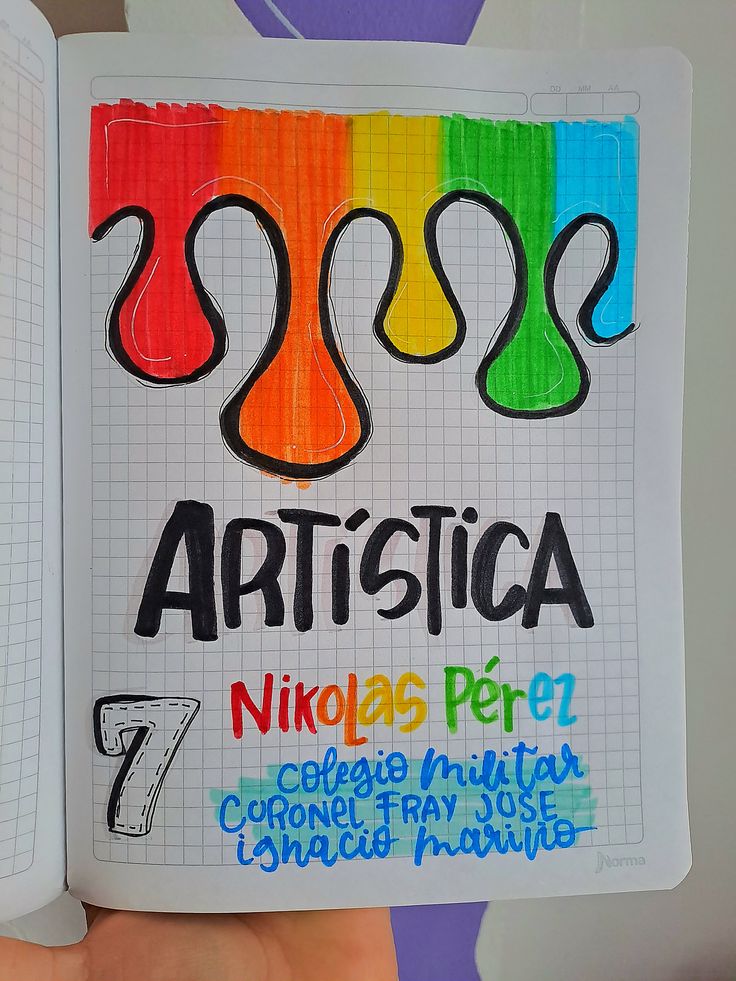 DD MM AA
ARTÍSTICA
NikOLAS Pérez
7
colegio militar
CORONEL FRAY JOSE
ignacio mariño
Norma